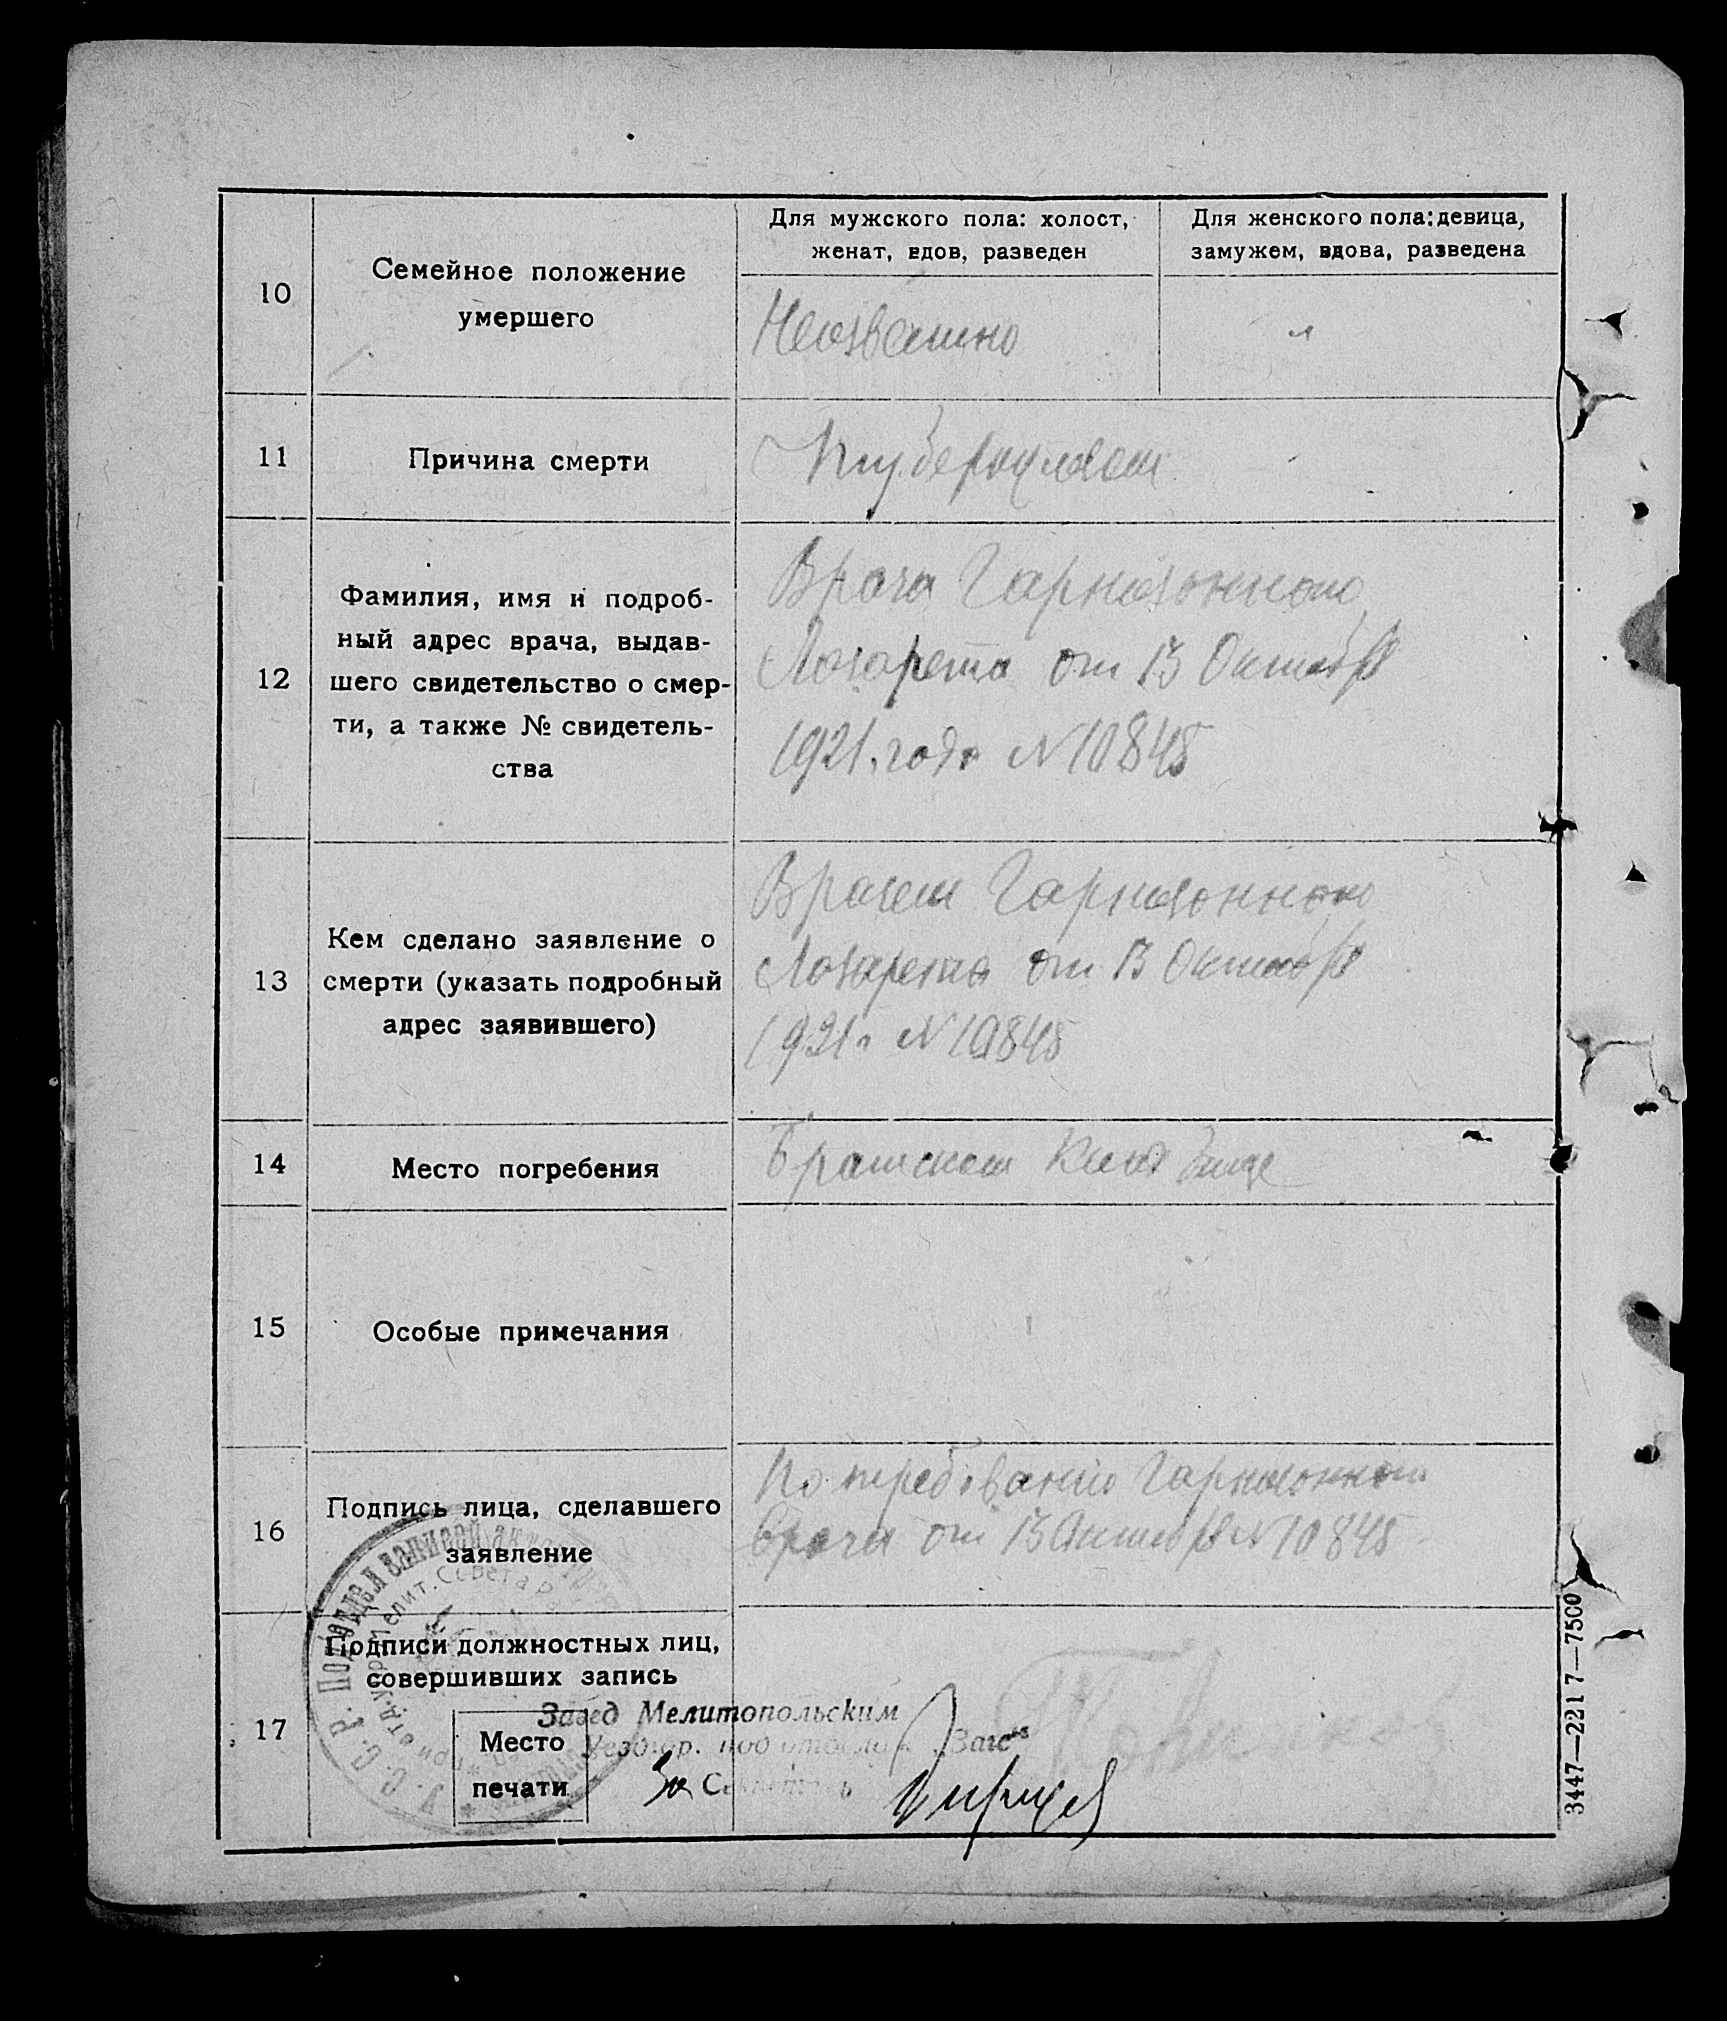 Для мужского пола: холост,
женат, вдов, разведен
Для женского пола: девица,
замужем, вдова, разведена
10
Семейное положение
умершего
Неизвестно
"
11
Причина смерти
Туберкулеза
12
Фамилия, имя и подроб-
ный адрес врача, выдав-
шего свидетельство о смер-
ти, а также № свидетель-
ства
Врача Гарнизонного
Лазарета от 13 Октября
1921 года N 10845
13
Кем сделано заявление о
смерти (указать подробный
адрес заявившего)
Врачем Гарнизонного
Лазарета от 13 Октября
1921 г N 10845
14
Место погребения
Братском Кладбище
15
Особые примечания
16
Подпись лица, сделавшего
заявление
По требованию Гарнизонного
Врача от 13 Октября N 10845
17
Подписи должностных лиц,
совершивших запись
Место
печати
Завед Мелитопольским
Уездгор. подотделом „Загс"
За Секретарь
У. С. С. Р. Подотдел записей актов
3447—2217—7500